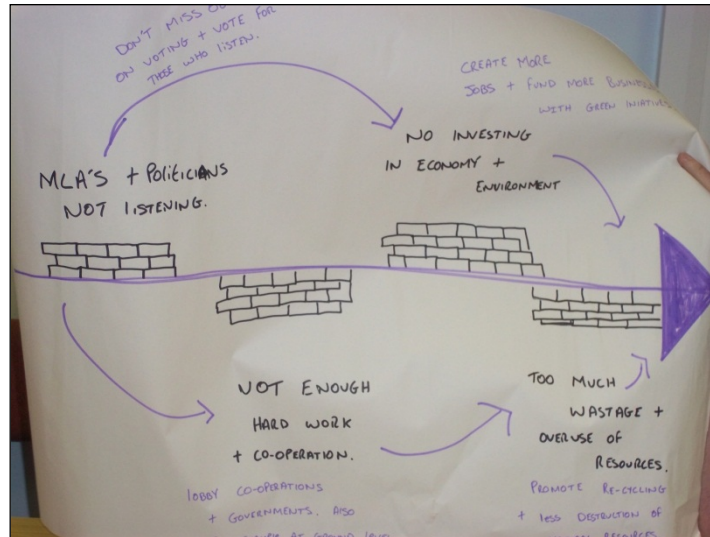 DON'T MISS OUT
ON VOTING + VOTE FOR
THOSE WHO LISTEN.
CREATE MORE
JOBS + FUND MORE BUSINESS
WITH GREEN INIATIVES
MLA'S + POLITICIANS
NOT LISTENING.
NO INVESTING
IN ECONOMY +
ENVIRONMENT
NOT ENOUGH
HARD WORK
+ CO-OPERATION.
TOO MUCH
WASTAGE +
OVERUSE OF
RESOURCES.
LOBBY CO-OPERATIONS
+ GOVERNMENTS. ALSO
AT GROUND LEVEL
PROMOTE RE-CYCLING
+ LESS DESTRUCTION OF
RESOURCES